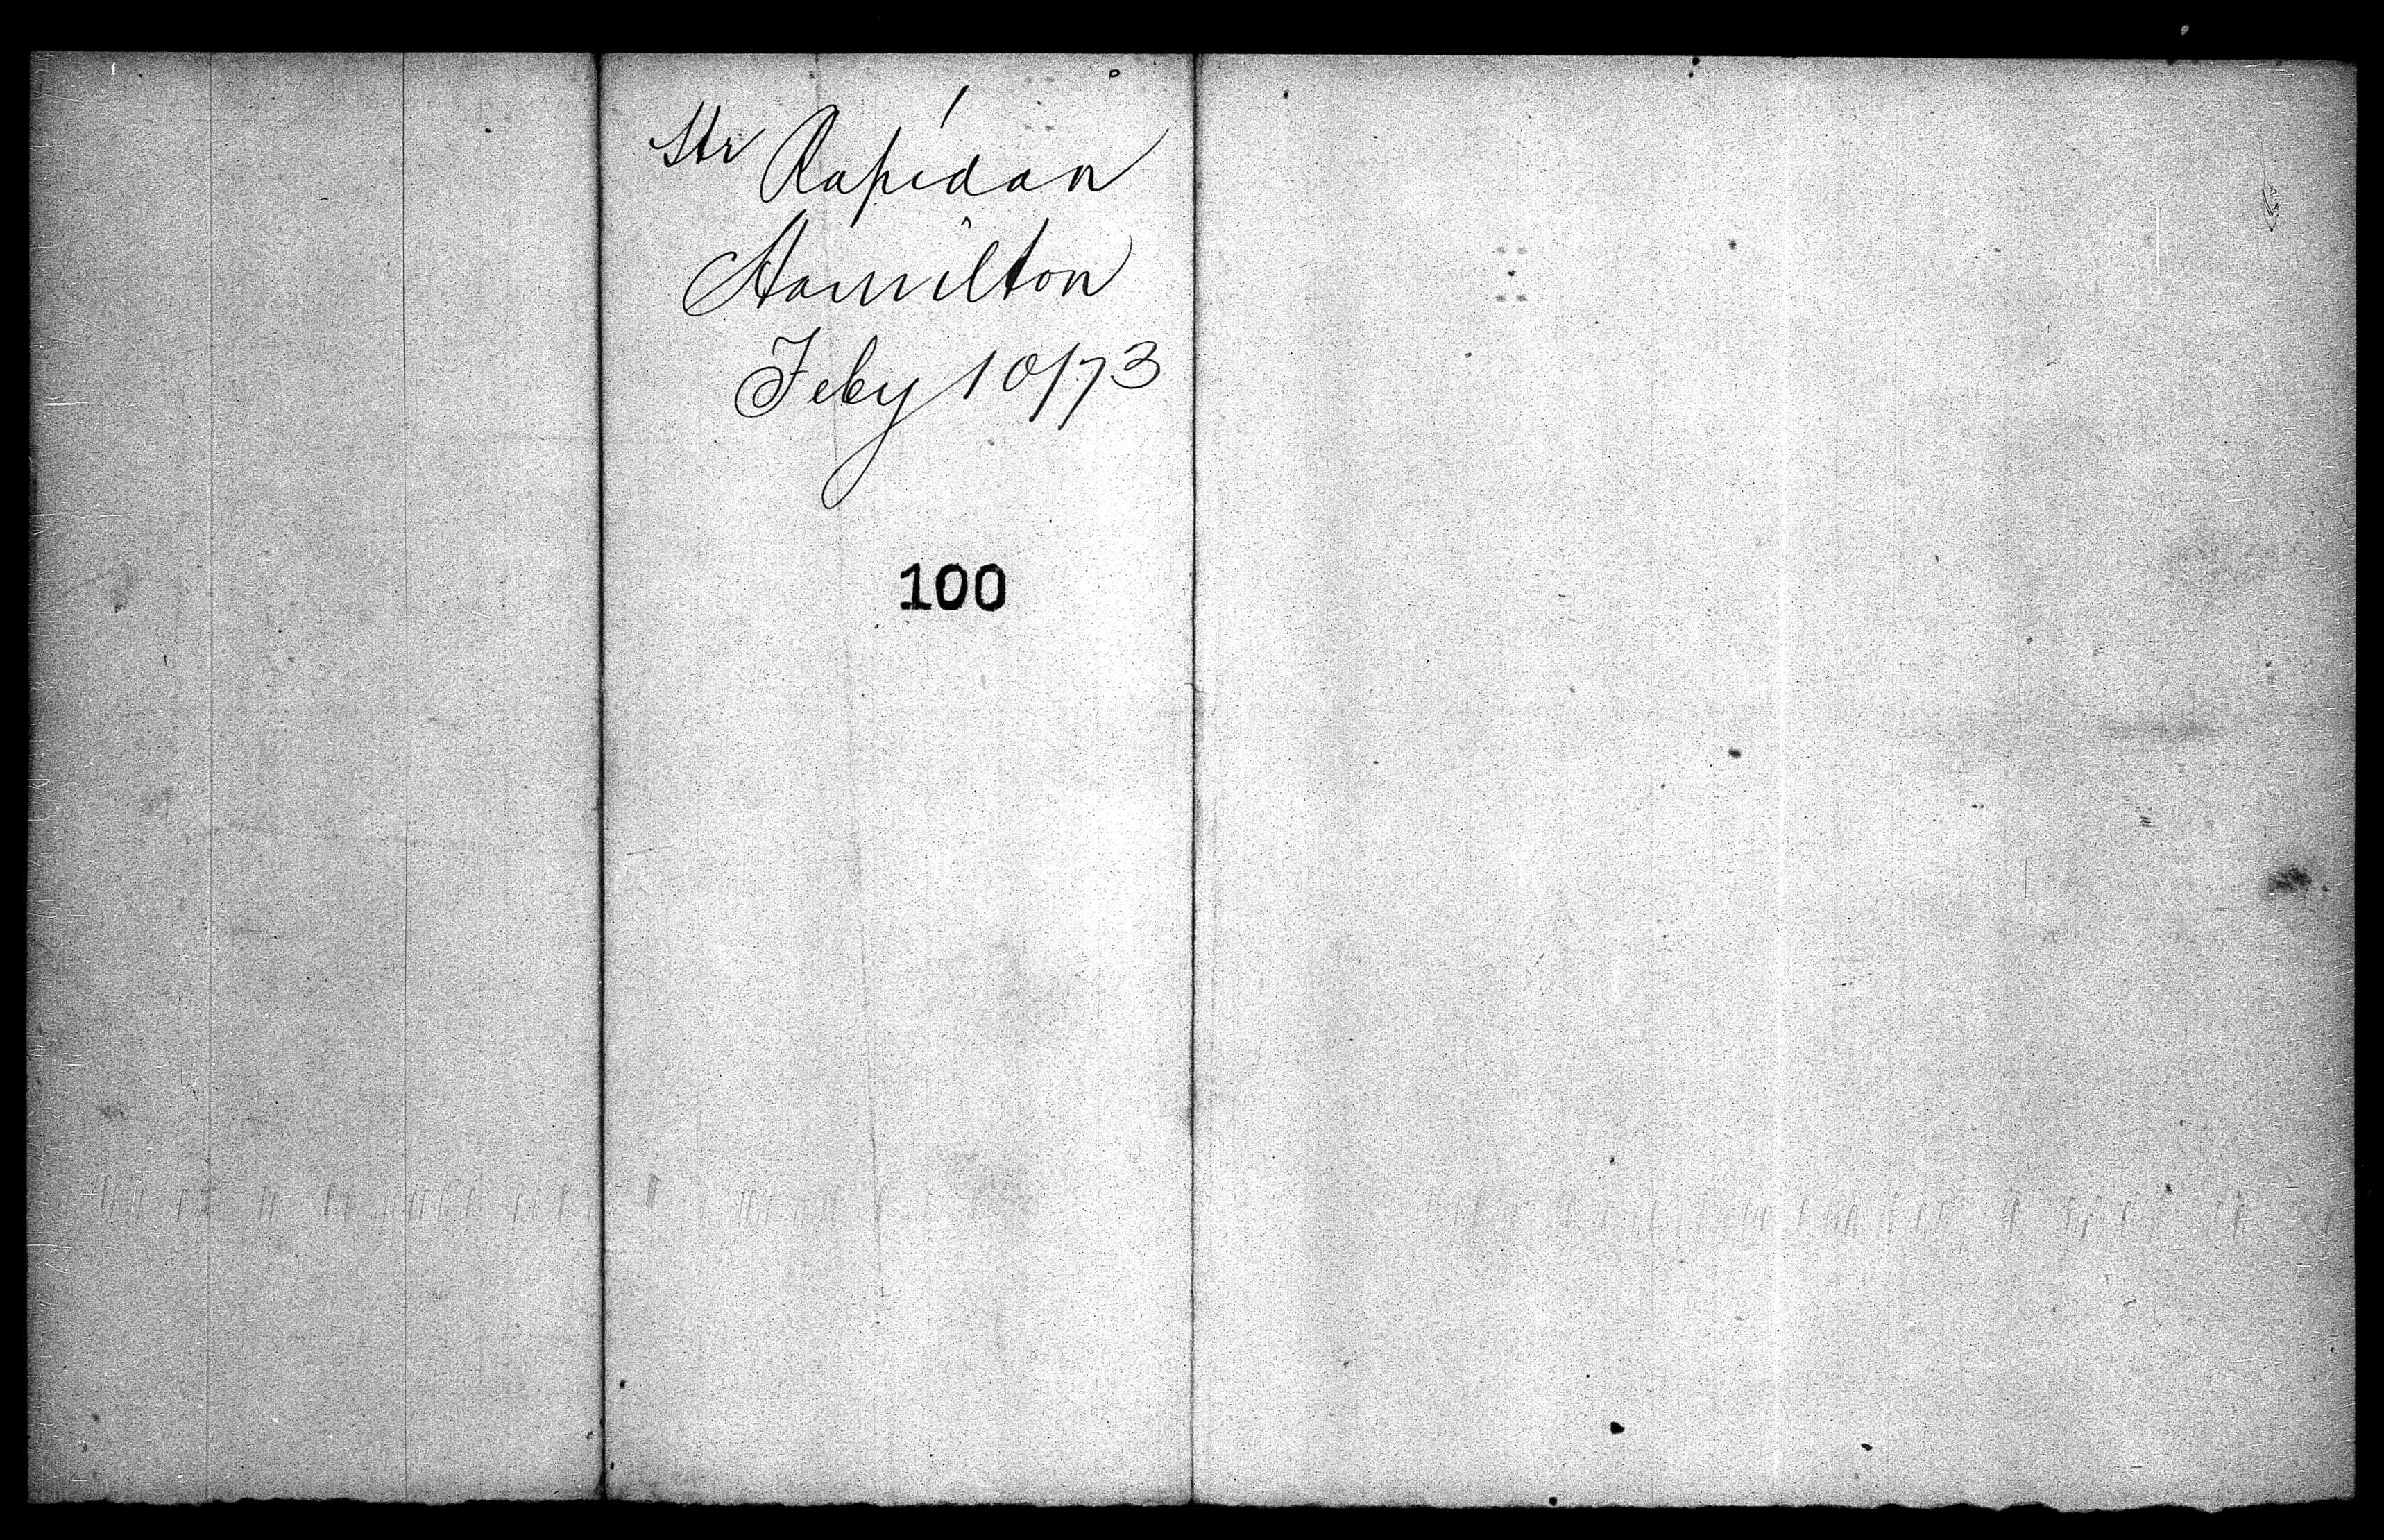 Str Rapidan
Hamilton
Feby 10/73
100